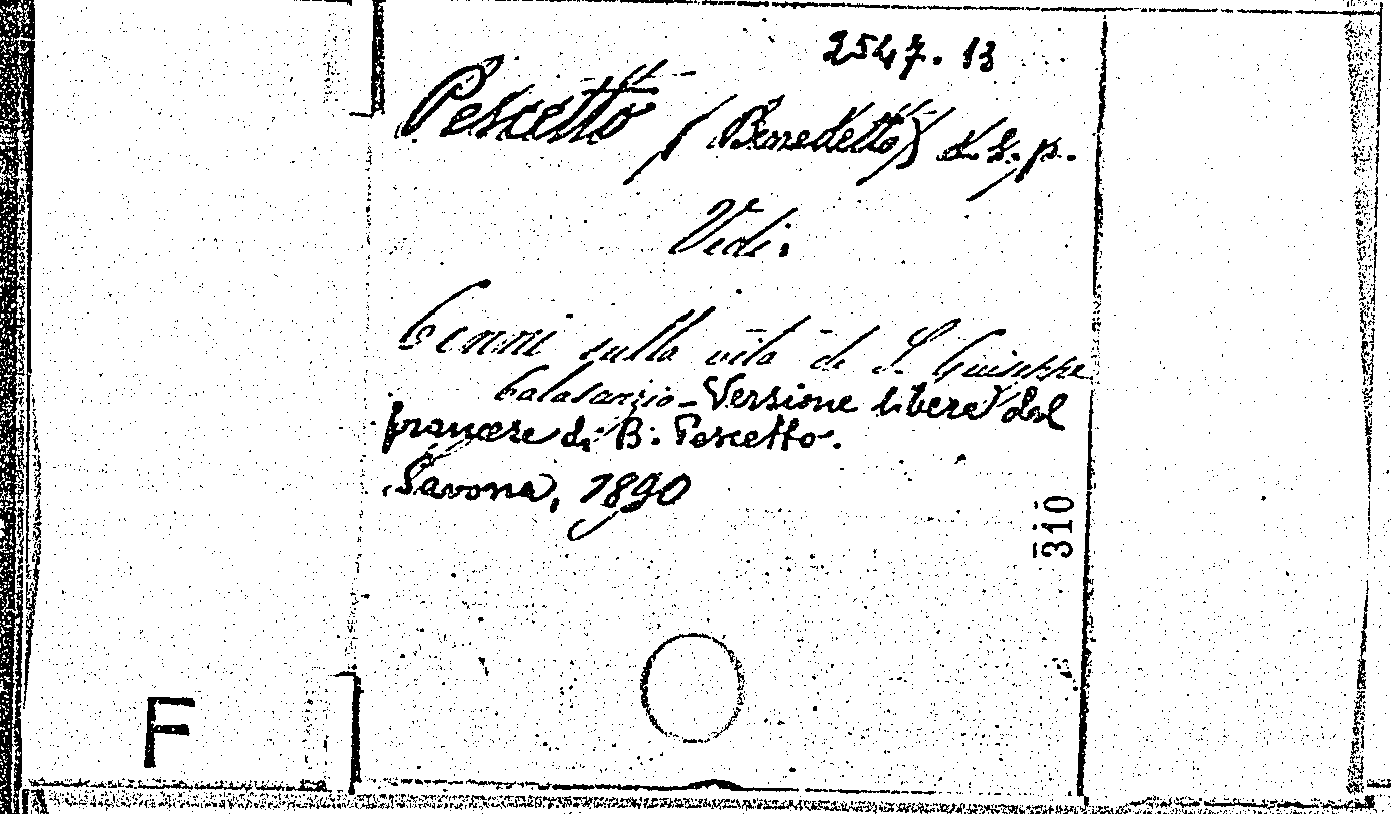 2547.13
Pescetto (Benedetto) d. S. p.
Vedi:
Cenni sulla vita di S. Giuseppe
Calasanzio - Versione libera dal
francese di B. Pescetto.
Savona, 1890
310
F